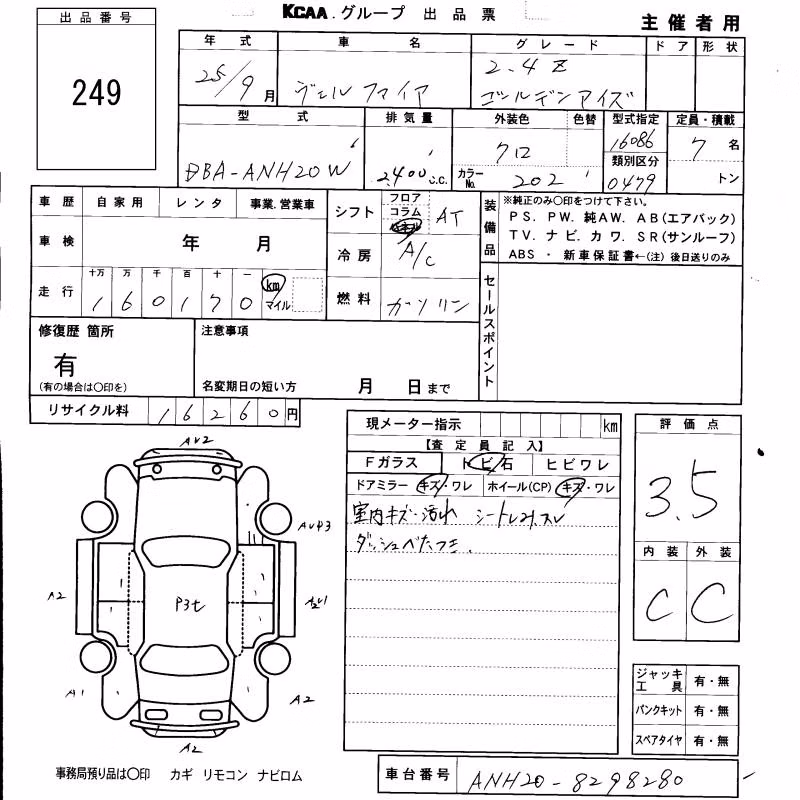 KCAA.グループ 出品票
主催者用
出品番号
249
年式 車名 グレード ドア 形状
25/9月 ヴェルファイア 2.4Z
ゴールデンアイズ
型式 排気量 外装色 色替 型式指定 定員・積載
DBA-ANH20W 2,400c.c. クロ 16086 7名
カラーNo. 202 類別区分 0479 トン
車歴 自家用 レンタ 事業.営業車
シフト フロア コラム パネル AT
装備品
※純正のみ〇印をつけて下さい。
PS. PW. 純AW. AB(エアバック)
TV. ナビ. カワ. SR(サンルーフ)
ABS ・ 新車保証書←(注) 後日送りのみ
車検 年 月
冷房 A/C
走行 十万 万 千 百 十 一
160170 km マイル
燃料 ガソリン
セールスポイント
修復歴 箇所
有
(有の場合は〇印を)
注意事項
名変期日の短い方 月 日まで
リサイクル料 16260円
現メーター指示 km
【査定員記入】
Fガラス トビ石 ヒビワレ
ドアミラー キズ・ワレ ホイール(CP) キズ・ワレ
室内キズ・汚れ シート
評価点
3.5
内装 外装
C C
AU2
A2
P3t
A1
A2
A2
ジャッキ工具 有・無
パンクキット 有・無
スペアタイヤ 有・無
事務局預り品は〇印 カギ リモコン ナビロム
車台番号 ANH20-8298280